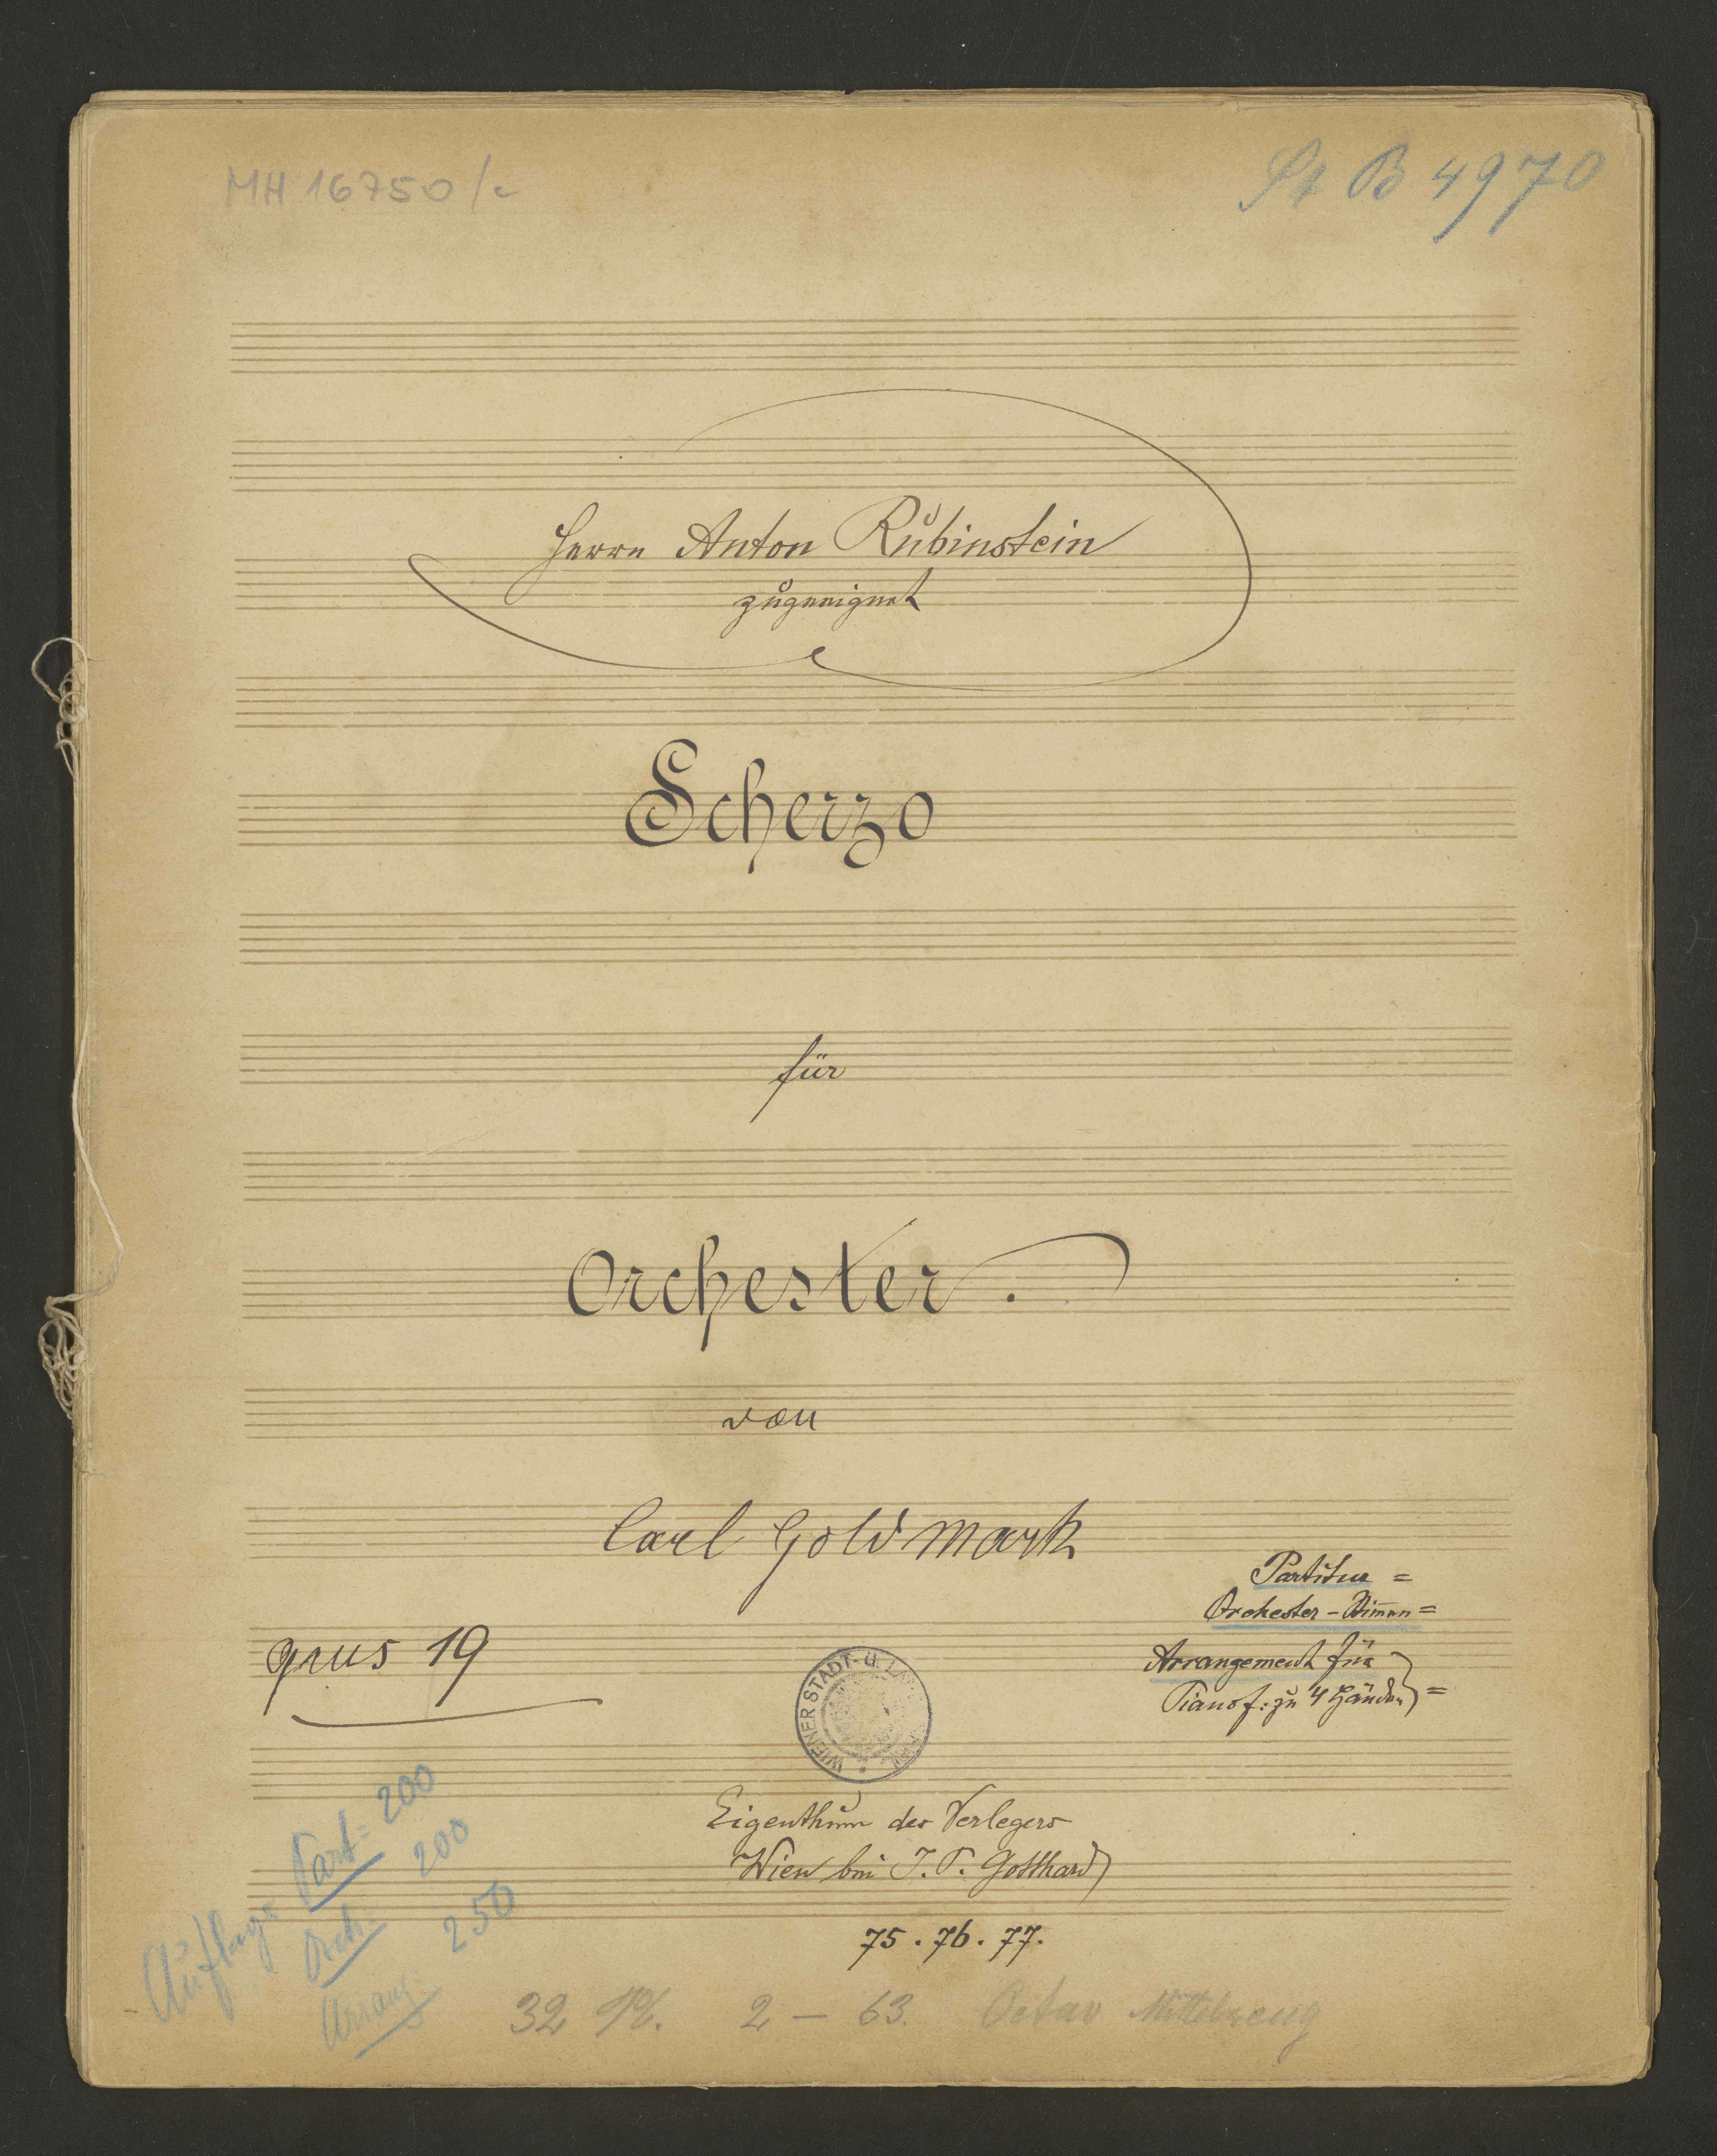 MH 16750/c
St B 4970
Herrn Anton Rubinstein
zugeeignet
Scherzo
für
Orchester.
von
Carl Goldmark
Partitur =
Orchester-Stim̅en =
opus 19
Arrangement für
Pianof: zu 4 Händen =
WIENER STADT- U.
Eigenthum des Verlegers
Wien bei J. P. Gotthard
75. 76. 77.
Auflage Part: 200
Orch: 200
Arrang: 250
32 Pl. 2 — 63. Octav